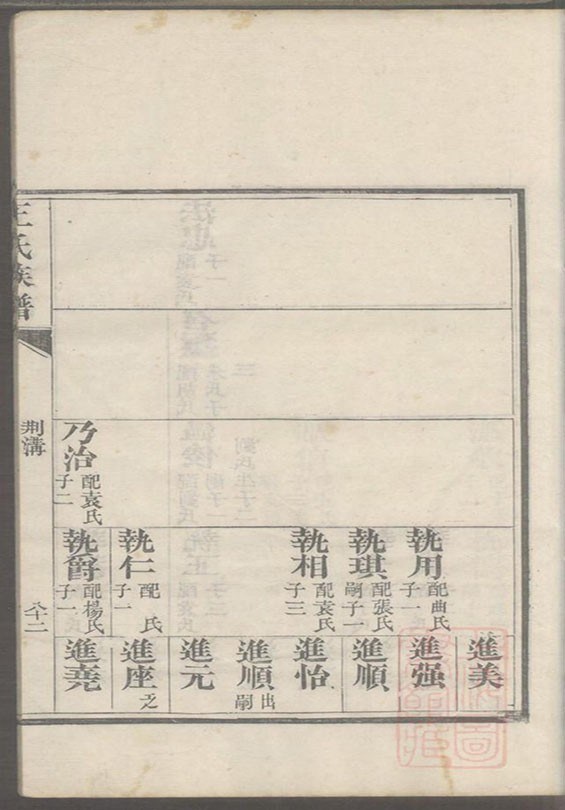 進美
執用 配曲氏 子一
進强
執琪 配張氏 嗣子一
進順
執相 配袁氏 子三
進怡
進順 出嗣
進元
執仁 配 氏 子一
進座 之
乃治 配袁氏 子二
執爵 配楊氏 子一
進堯
王氏族譜
荆溝
八十二